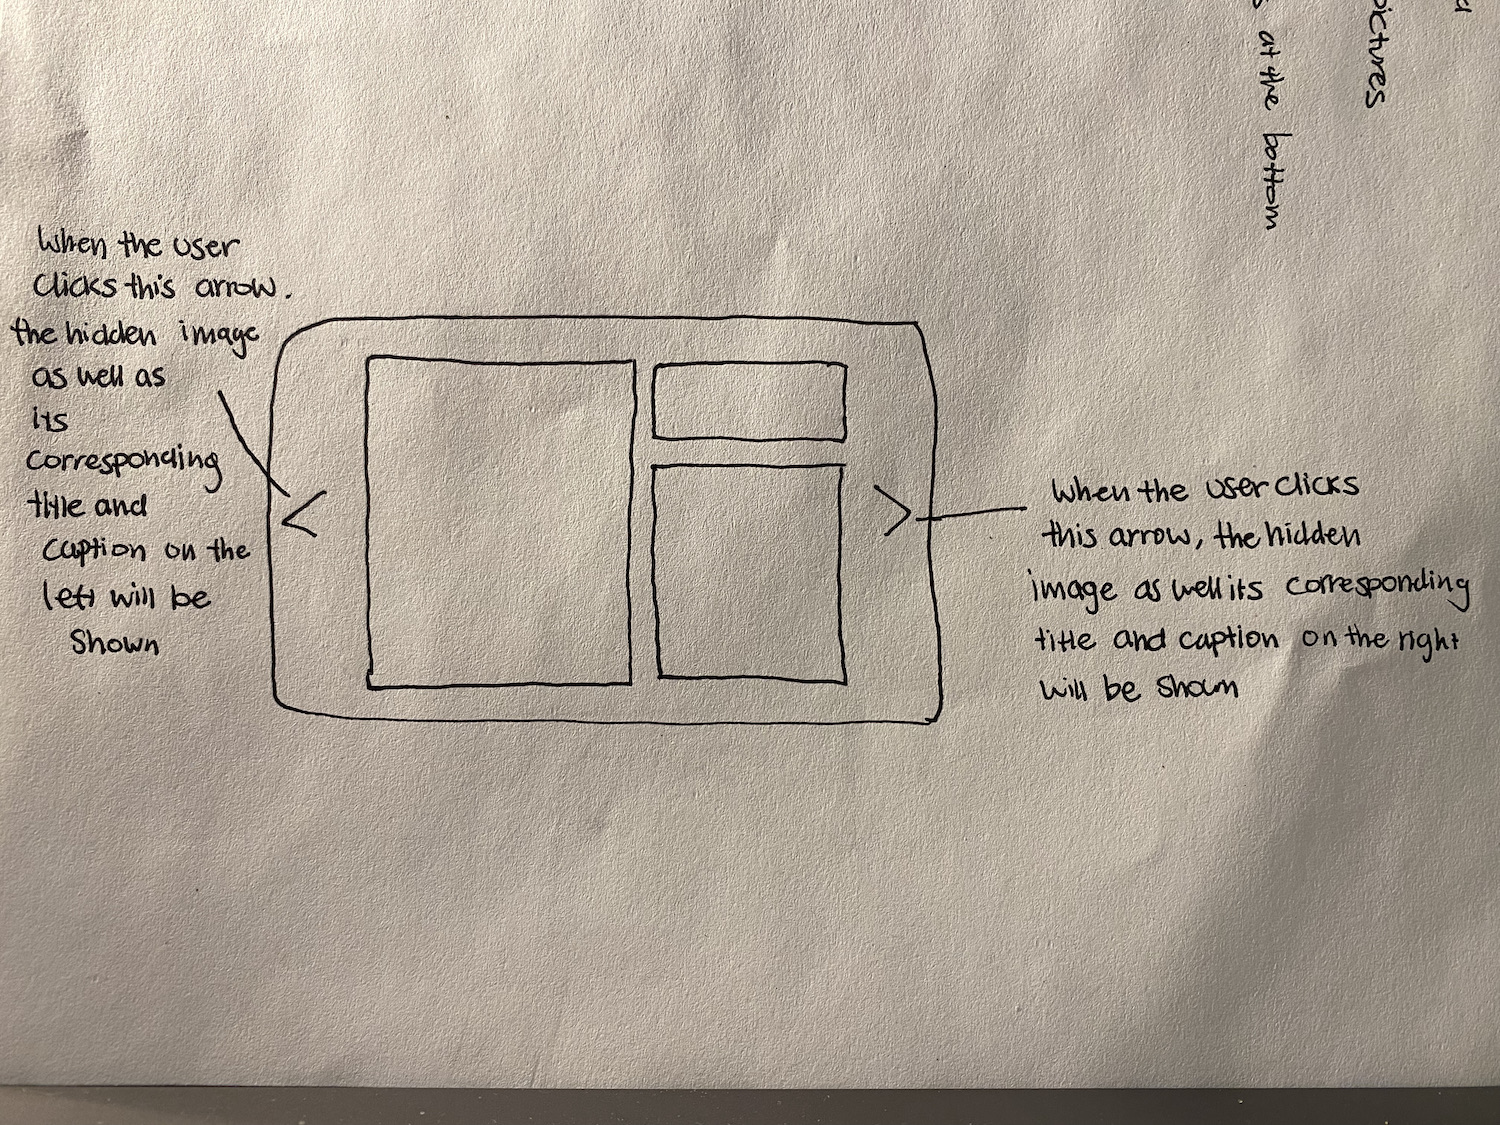 When the user
clicks this arrow.
the hidden image
as well as
its
corresponding
title and
caption on the
left will be
shown
<
>
When the user clicks
this arrow, the hidden
image as well its corresponding
title and caption on the right
will be shown
pictures
at the bottom